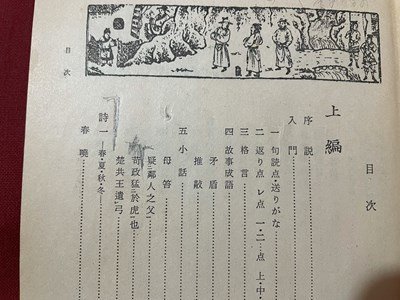 目次
目次
上編
序説
入門
一 句読点・送りがな
二 返り点 レ点 一・二・点 上・中
三 格言
四 故事成語
矛盾
推敲
五 小話
母答
疑鄰人之父
苛政猛於虎也
楚共王遺弓
詩一 春・夏・秋・冬
春曉